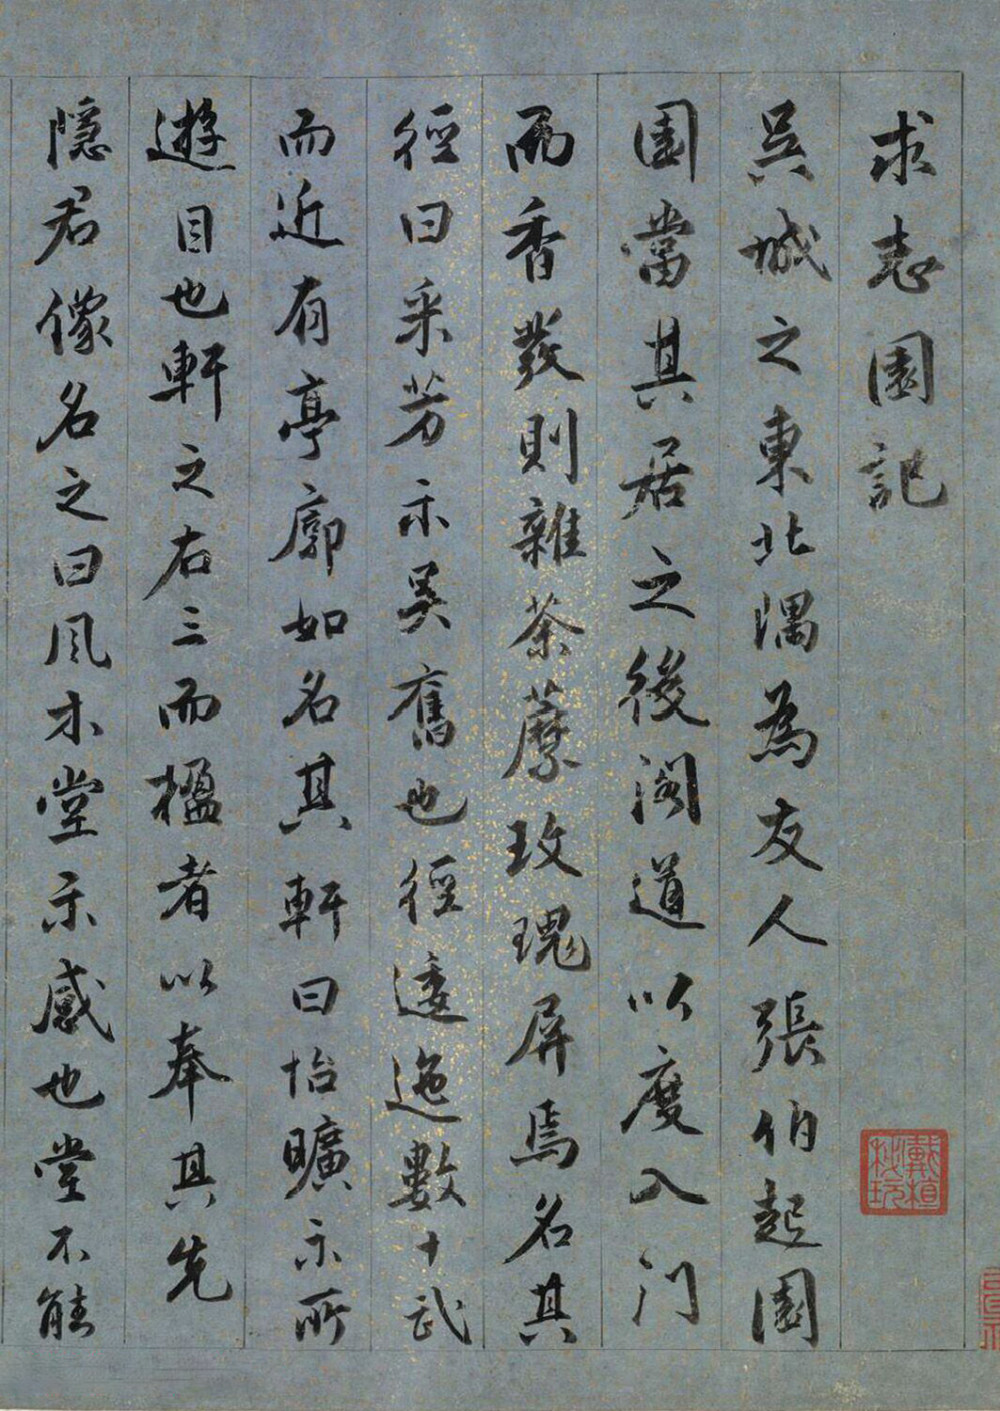 求志園記
吳城之東北隅為友人張伯起園
園當其居之後閣道以度入門
而香發則雜荼蘼玫瑰屏焉名其
徑曰采芳示吳舊也徑逶迤數十武
而近有亭廓如名其軒曰怡曠示所
遊目也軒之右三而楹者以奉其先
隱君像名之曰風木堂示感也堂不能